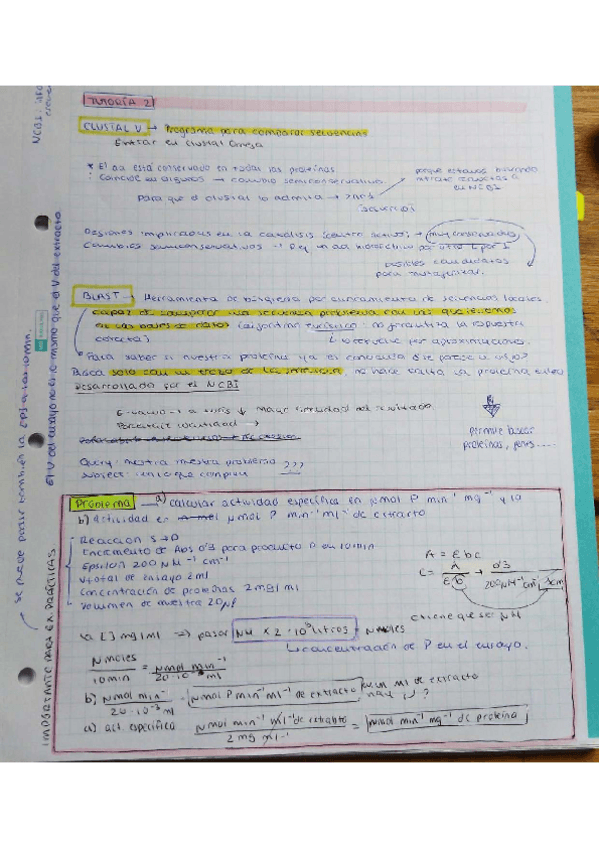 TUTORÍA 2
CLUSTAL V → Programa para comparar secuencias
Entrar en clustal Omega
* El aa está conservado en todas las proteínas
: Coincide en algunos → cambio semiconservativo
porque estamos buscando
en NCBI
Para que el clustal lo admita →
Regiones implicadas en la catálisis (centro activo) → muy conservados
Cambios semiconservativos → Dej. un aa hidrofílico por otro
posibles candidatos
para mutagénesis.
BLAST → Herramienta de búsqueda por alineamiento de secuencias locales
capaz de comparar una secuencia problema con las que tenemos
en las bases de datos (algoritmo heurístico: no garantiza la respuesta
correcta) resuelve por aproximaciones.
* Para saber si nuestra proteína ya es conocida o se parece a algo?
Busca solo con un trozo de la secuencia, no hace falta la proteína entera
Desarrollada por el NCBI
E-value → a más ↓ mayor similitud del resultado
Porcentaje identidad →
Permite buscar
proteínas, genes.....
Query: nuestra muestra problema
Subject: con lo que compara ???
Problema → a) calcular actividad específica en nmol P min⁻¹ mg⁻¹ y la
b) actividad en nmol P min⁻¹ ml⁻¹ de extracto
Reacción S→P
Incremento de Abs 0'3 para producto P en 10min
Epsilon 200 nM⁻¹ cm⁻¹
Vtotal de ensayo 2ml
Concentración de proteínas 2mg/ml
Volumen de muestra 20μl
A = εbc
c = A / εb + 0'3 / 200nM⁻¹cm⁻¹ 1cm
la [] mg/ml => pasar nM x 2·10⁻³ litros = nmoles
↳ concentración de P en el ensayo.
nmoles / 10min = nmol min⁻¹ / 20·10⁻³ ml
b) nmol min⁻¹ / 20·10⁻³ ml = nmol P min⁻¹ ml⁻¹ de extracto
a) act. específica nmol min⁻¹ ml⁻¹ de extracto / 2 mg ml⁻¹ = nmol min⁻¹ mg⁻¹ de proteína
IMPORTANTE PARA EX. PRÁCTICAS
El V del ensayo no es lo mismo que el V del extracto
→ Se puede pasar también la